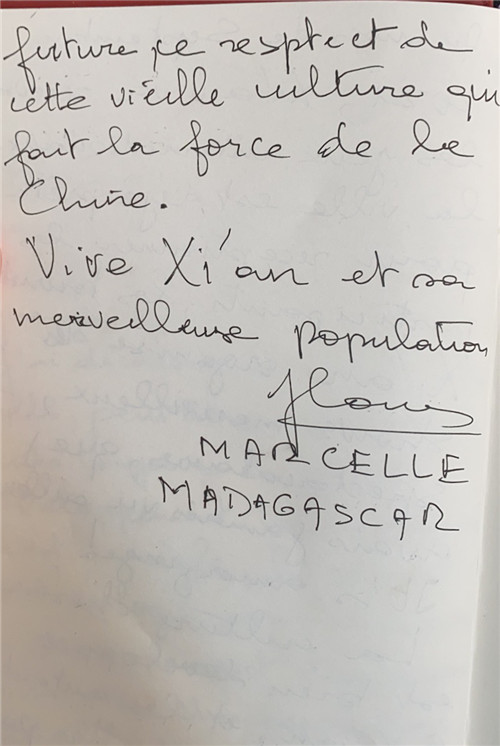 future ce respect et de
cette vieille culture qui
fait la force de la
Chine.
Vive Xi'an et sa
merveilleuse population
MARCELLE
MADAGASCAR